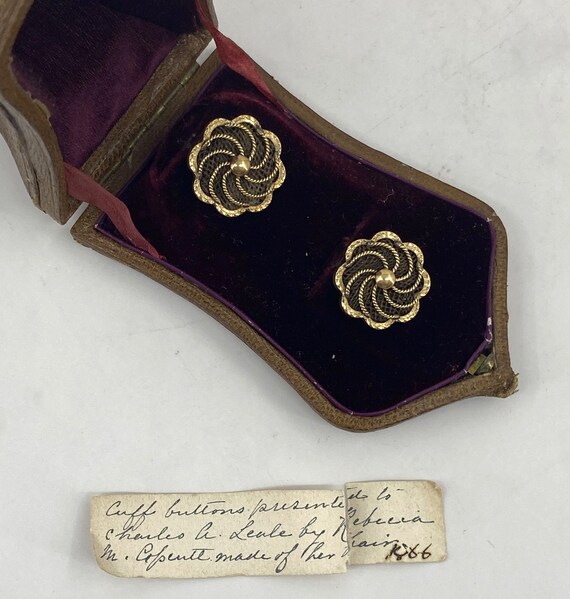 Cuff buttons presented to
Charles A. Leale by Rebecia
M. Copcutt made of her hair
1866